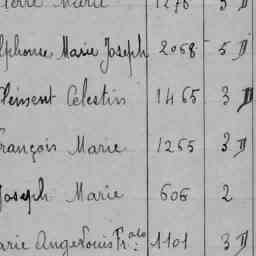 Marie 1276 5
Alphonse Marie Joseph 2058 5
Clément Celestin 1465 3
François Marie 1255 3
Joseph Marie 606 2
Marie Ange Louis Fr. 1101 3